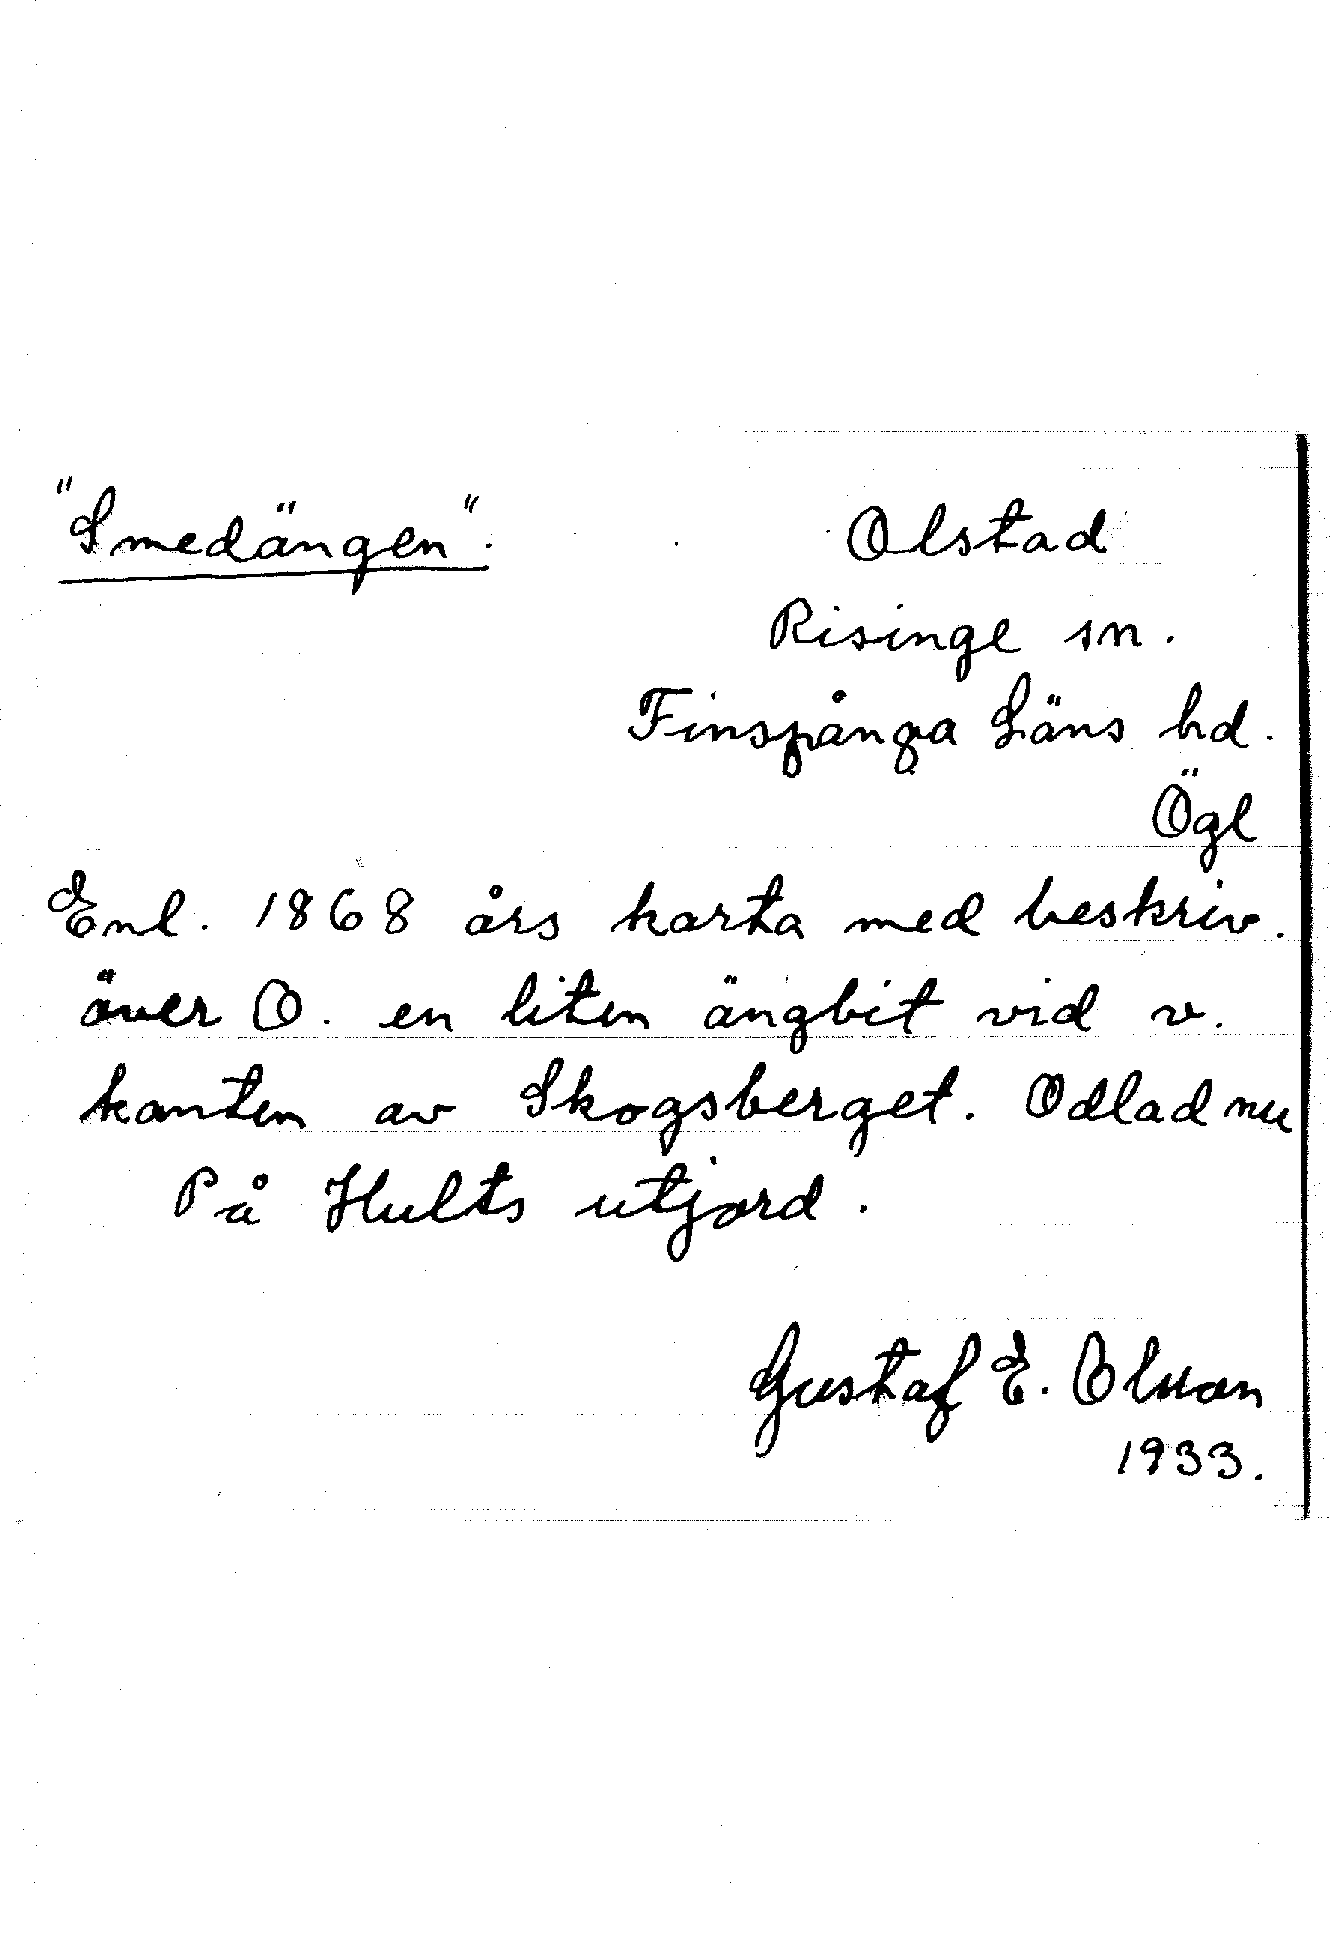 "Smedängen".
Olstad
Risinge sn.
Finspånga Läns hd.
Ögl
Enl. 1868 års karta med beskriv.
över O. en liten ängbit vid v.
kanten av Skogsberget. Odlad nu
På Hults utjord.
Gustaf E. Olsson
1933.